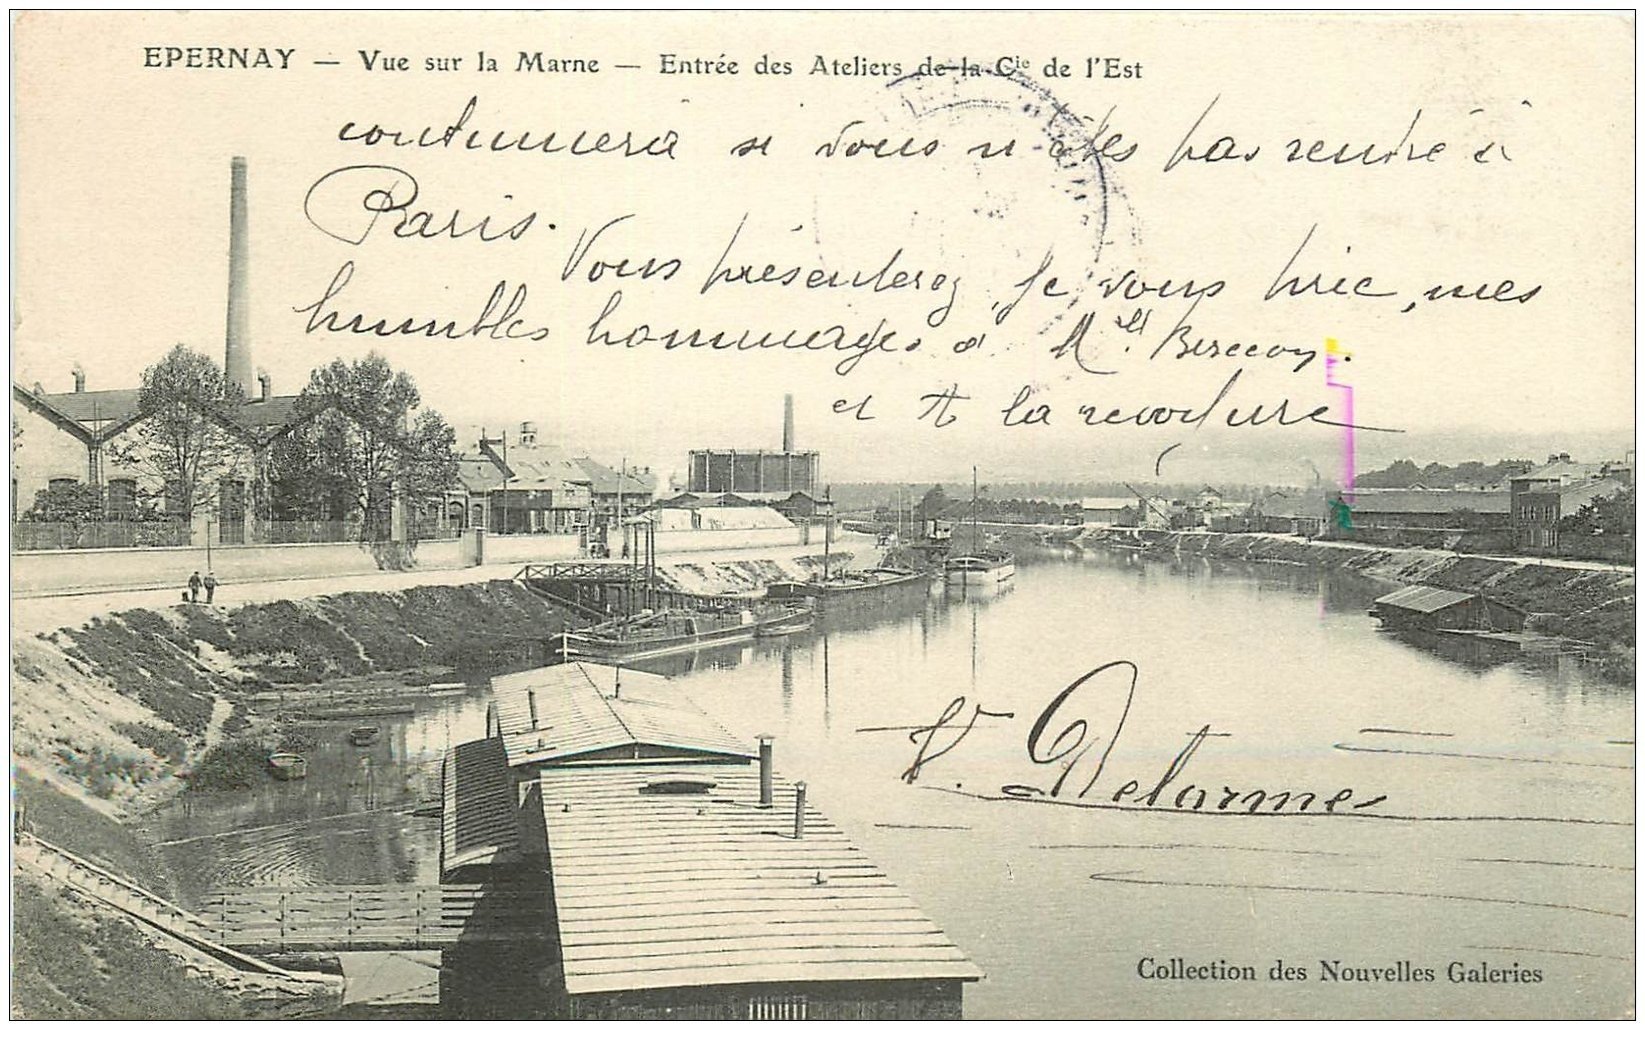 EPERNAY — Vue sur la Marne — Entrée des Ateliers de la Cie de l'Est
continuera si vous n'êtes pas rentré à
Paris.
Vous présenterez, je vous prie, mes
humbles hommages à Mell
et à la
V. Delarme
Collection des Nouvelles Galeries